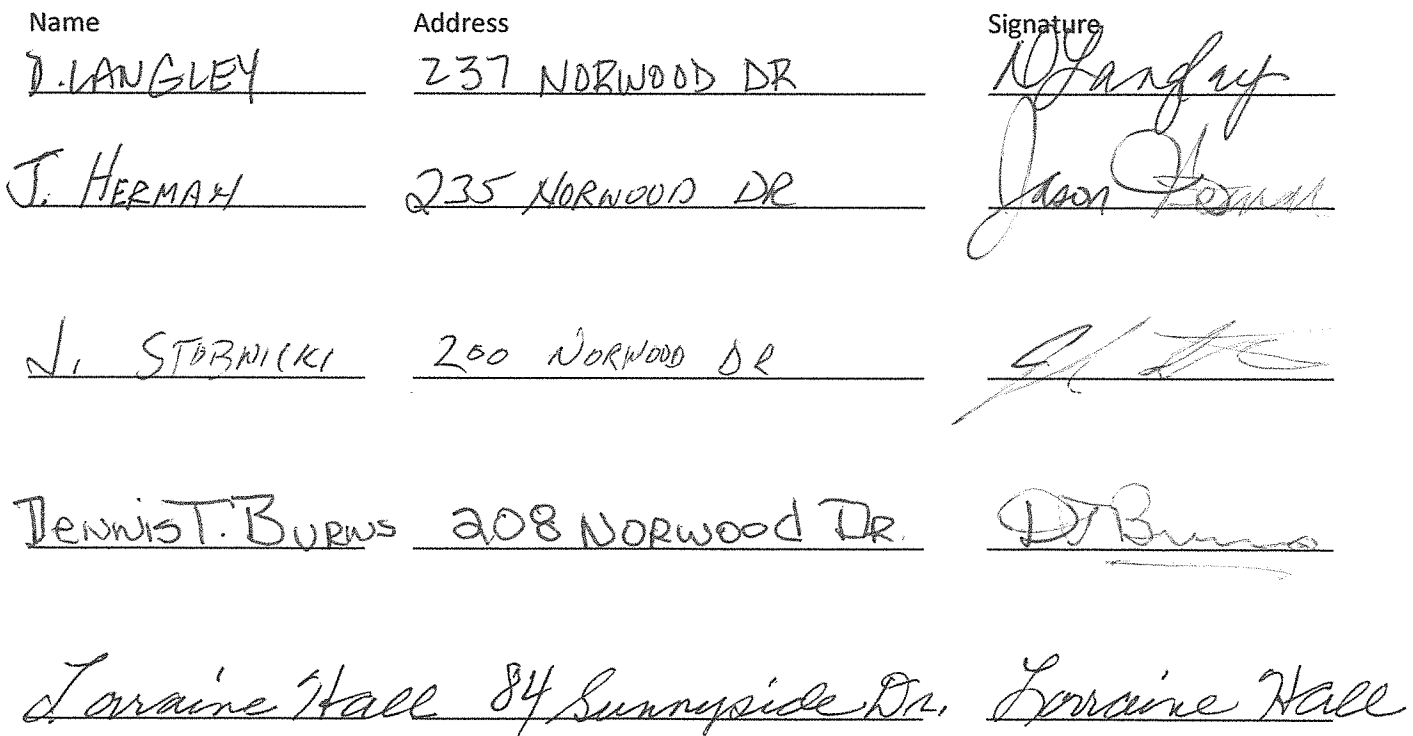 Name Address Signature
D. LANGLEY 237 NORWOOD DR D Langley
J. HERMAN 235 NORWOOD DR Jason
J. 200 NORWOOD DR
Dennis T. Burns 208 Norwood Dr. DT Burns
Lorraine Hall 84 Sunnyside Dr. Lorraine Hall